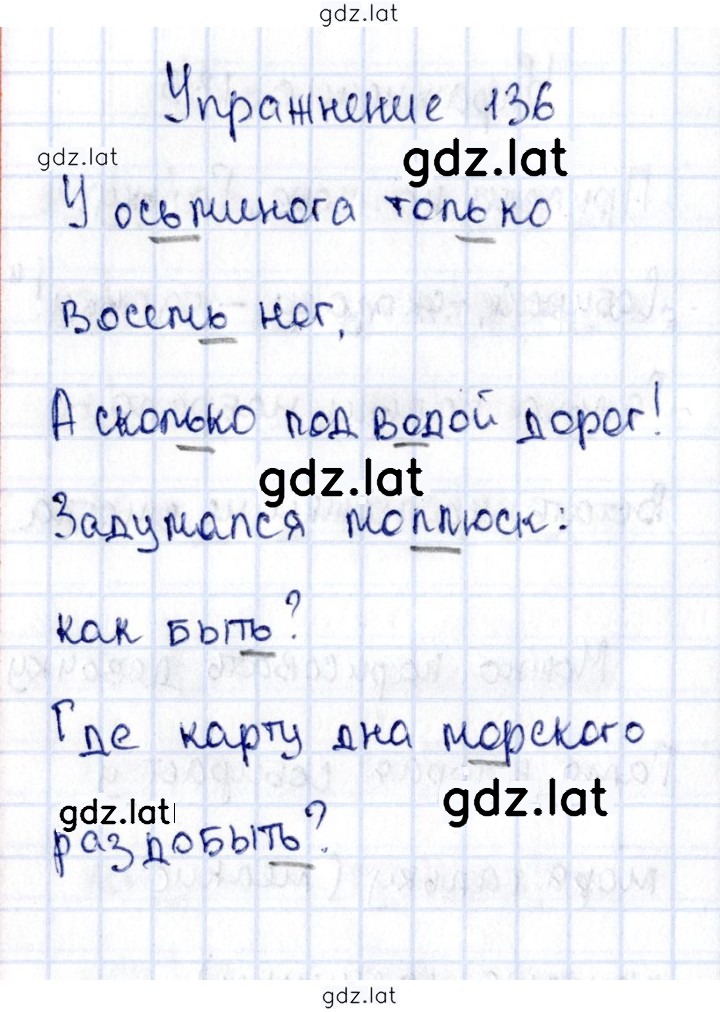 gdz.lat
Упражнение 136
gdz.lat
gdz.lat
У осьминога только
восемь ног,
А сколько под водой дорог!
gdz.lat
Задумался моллюск:
как быть?
Где карту дна морского
gdz.lat
gdz.lat
раздобыть?
gdz.lat